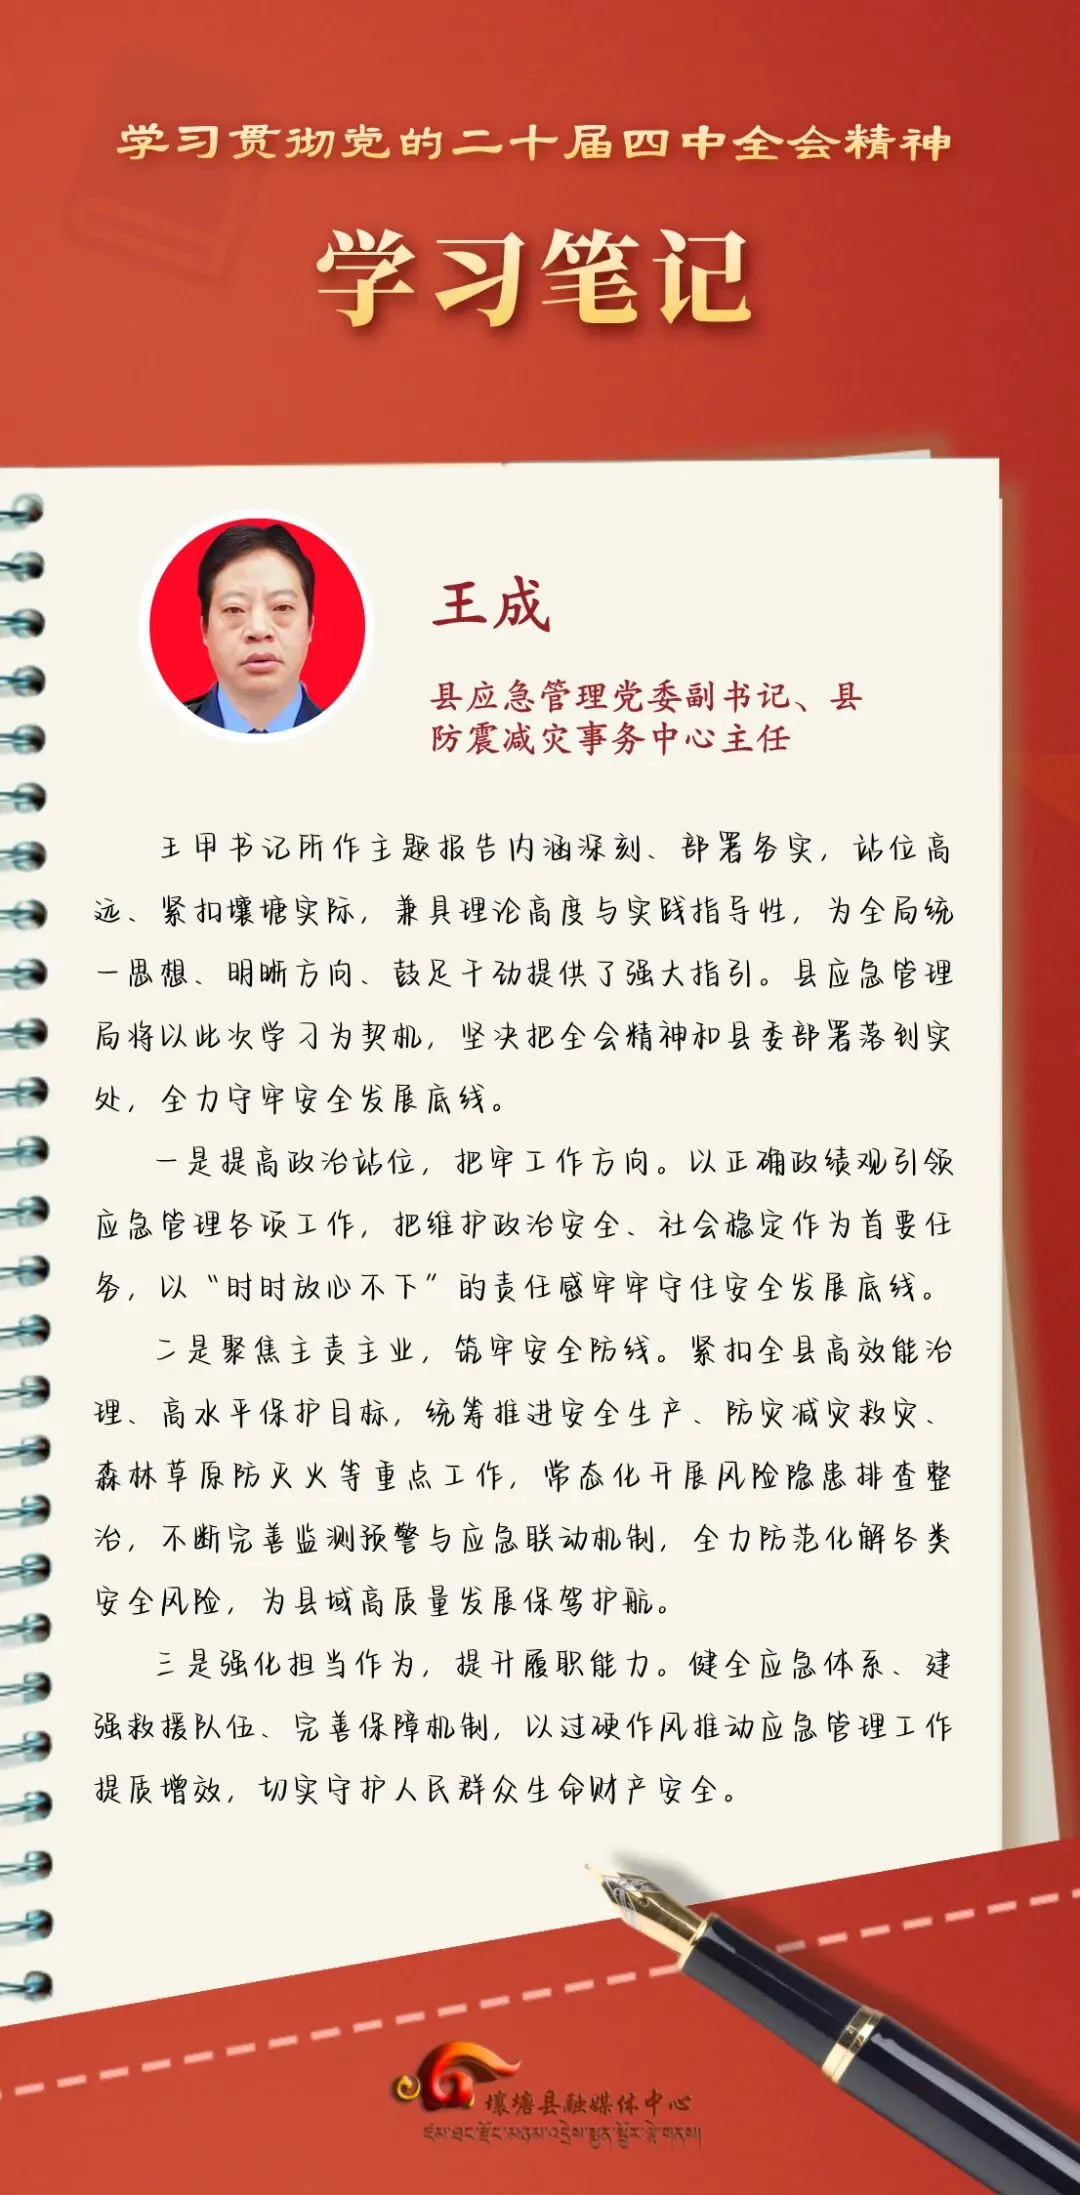 学习贯彻党的二十届四中全会精神
学习笔记
王成
县应急管理党委副书记、县
防震减灾事务中心主任
王甲书记所作主题报告内涵深刻、部署务实，站位高
远、紧扣壤塘实际，兼具理论高度与实践指导性，为全局统
一思想、明晰方向、鼓足干劲提供了强大指引。县应急管理
局将以此次学习为契机，坚决把全会精神和县委部署落到实
处，全力守牢安全发展底线。
一是提高政治站位，把牢工作方向。以正确政绩观引领
应急管理各项工作，把维护政治安全、社会稳定作为首要任
务，以“时时放心不下”的责任感牢牢守住安全发展底线。
二是聚焦主责主业，筑牢安全防线。紧扣全县高效能治
理、高水平保护目标，统筹推进安全生产、防灾减灾救灾、
森林草原防灭火等重点工作，常态化开展风险隐患排查整
治，不断完善监测预警与应急联动机制，全力防范化解各类
安全风险，为县域高质量发展保驾护航。
三是强化担当作为，提升履职能力。健全应急体系、建
强救援队伍、完善保障机制，以过硬作风推动应急管理工作
提质增效，切实守护人民群众生命财产安全。
壤塘县融媒体中心
འཛམ་ཐང་རྫོང་མཉམ་འདྲེས་སྨྱན་སྦྱོར་ལྟེ་གནས།